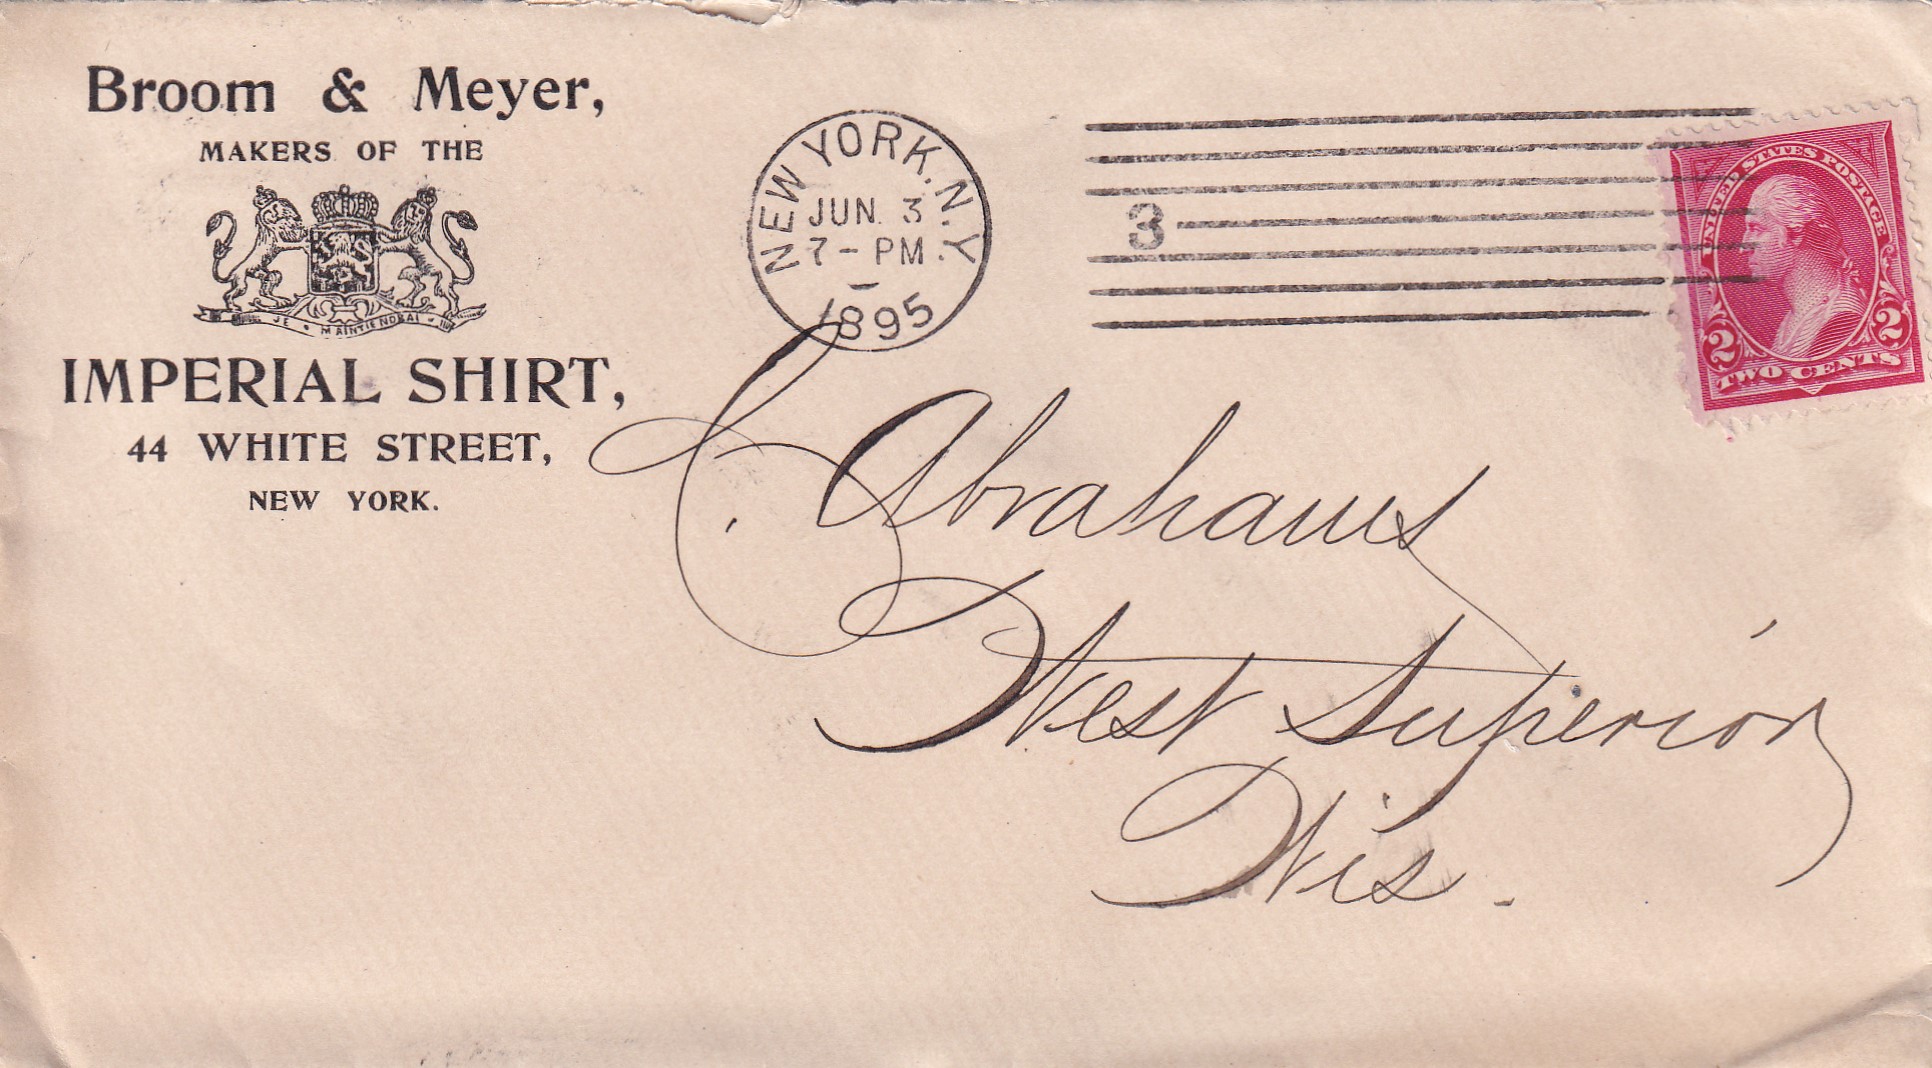 Broom & Meyer,
MAKERS OF THE
JE MAINTIENDRAI
IMPERIAL SHIRT,
44 WHITE STREET,
NEW YORK.
NEW YORK. N.Y.
JUN. 3
7 - PM
1895
3
UNITED STATES POSTAGE
2 2
TWO CENTS
Abrahams
West Superior
Wis.